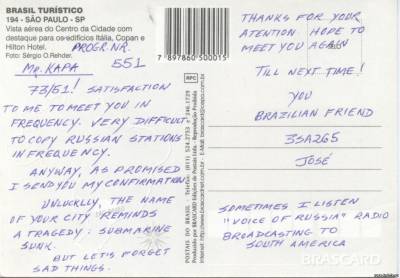 BRASIL TURÍSTICO
194 - SÃO PAULO - SP
Vista aérea do Centro da Cidade com
destaque para os edifícios Itália, Copan e
Hilton Hotel.
Foto: Sérgio O.Rehder.
PROGR. NR.
551
MR. KAPA
73/51! SATISFACTION
TO ME TO MEET YOU IN
FREQUENCY. VERY DIFFICULT
TO COPY RUSSIAN STATIONS
IN FREQUENCY.
ANYWAY, AS PROMISED
I SEND YOU MY CONFIRMATION.
UNLUCKLLY, THE NAME
OF YOUR CITY REMINDS
A TRAGEDY: SUBMARINE
SUNK.
BUT LET'S FORGET
SAD THINGS.
7 897860 500015
RPC
THANKS FOR YOUR
ATENTION HOPE TO
MEET YOU AGAIN
TILL NEXT TIME!
YOU
BRAZILIAN FRIEND
3SA265
JOSÉ
SOMETIMES I LISTEN
"VOICE OF RUSSIA" RADIO
BROADCASTING TO
SOUTH AMERICA
BRASCARD